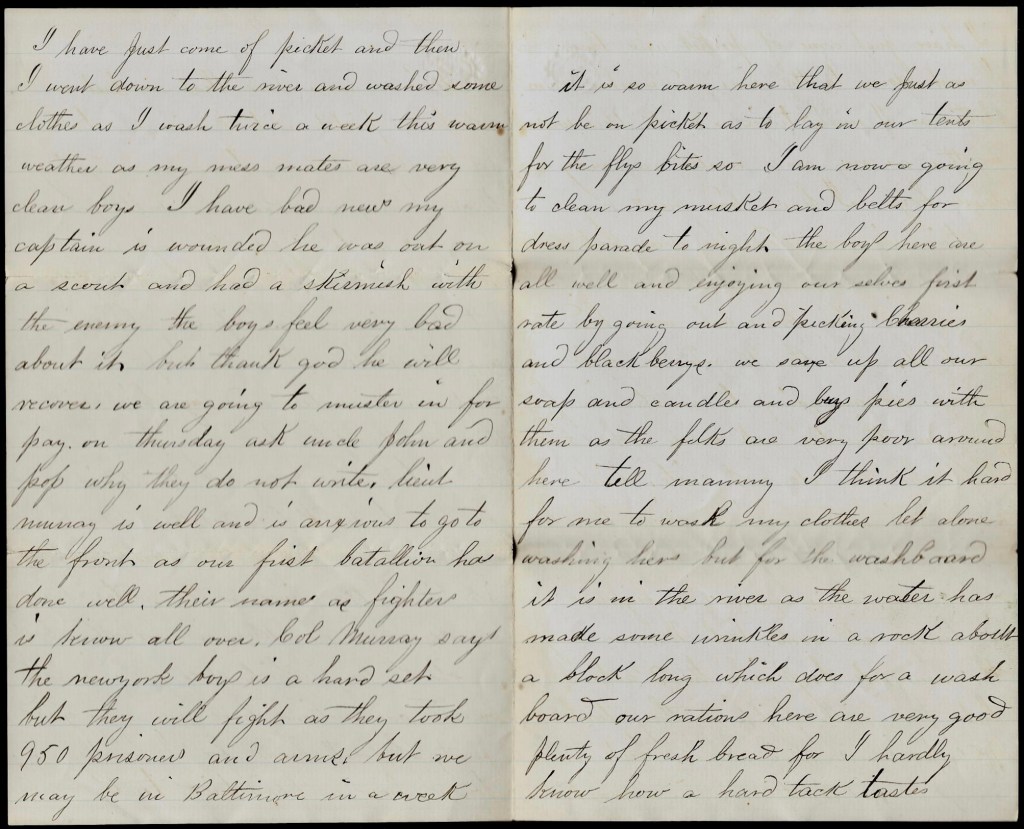 I have Just come of picket and then
I went down to the river and washed some
clothes as I wash twice a week this warm
weather as my mess mates are very
clean boys I have bad news my
captain is wounded he was out on
a scout and had a skirmish with
the enemy the boys feel very bad
about it but thank god he will
recover. we are going to muster in for
pay. on thursday ask uncle John and
pop why they do not write. lieut
murray is well and is anxious to go to
the front as our first batallion has
done well. their names as fighters
is know all over. Col Murray says
the newyork boys is a hard set
but they will fight as they took
950 prisoners and arms. but we
may be in Baltimore in a week
it is so warm here that we Just as
not be on picket as to lay in our tents
for the flys bites so I am now a going
to clean my musket and belts for
dress parade to night the boys here are
all well and enjoying our selves first
rate by going out and picking cherries
and blackberrys. we save up all our
soap and candles and buy pies with
them as the folks are very poor around
here tell mammy I think it hard
for me to wash my clothes let alone
washing hers but for the washboard
it is in the river as the water has
made some wrinkles in a rock about
a block long which does for a wash
board our rations here are very good
plenty of fresh bread for I hardly
know how a hard tack tastes